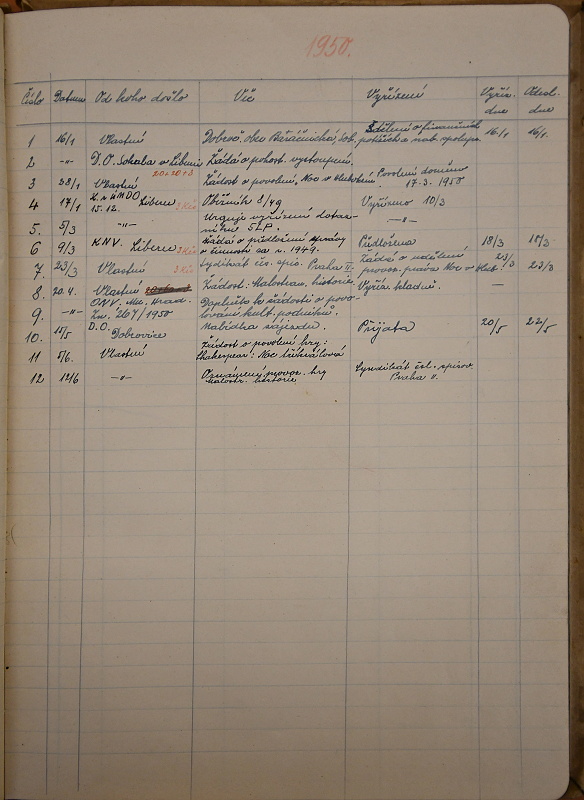 1950.
Číslo Datum Od koho došlo Věc Vyřízení Vyříz. dne Odesl. dne
1 16/1 Vlastní Dobroč. obec Baráčnická, Sok. Sdělení o finančních potížích 16/1 16/1.
2 -"- D. O. Sokola v Liberci Žádá o pohost. vystoupení.
3 28/1 Vlastní 20+20+3 Žádost o povolení „Noc v Povolení dodáno 17-3. 1950
4 17/1 15.12. Liberec 3 Kčs Oběžník 8/49 Vyřízeno 10/3
5. 5/3 -"- Urguje vyřízení dotazníku -"-
6 9/3 KNV. Liberec 3 Kčs Žádá o předložení zprávy o činnosti za r. 1949. Předložena 18/3 18/3.
7 23/3 Vlastní 3 Kčs Syndikát čes. spis. Praha II. Žádá o udělení provoz. práva Noc v 23/3 23/3
8. 20.4. Vlastní Žádost: Malostran. historie Vyříz. kladně. —
9. -"- ONV. Mn. Hrad. Zn. 267/1950 Doplněk ke žádosti o povolování kult. podniků.
10. 15/5 D. O. Dobrovice Nabídka zájezdu. Přijata 20/5 22/5
11 5/6. Vlastní Žádost o povolení hry: Shakespear: Noc tříkrálová
12 12/6 -"- Oznámení provoz. hry Malostr. historie Syndikát čsl. spisov. Praha II.